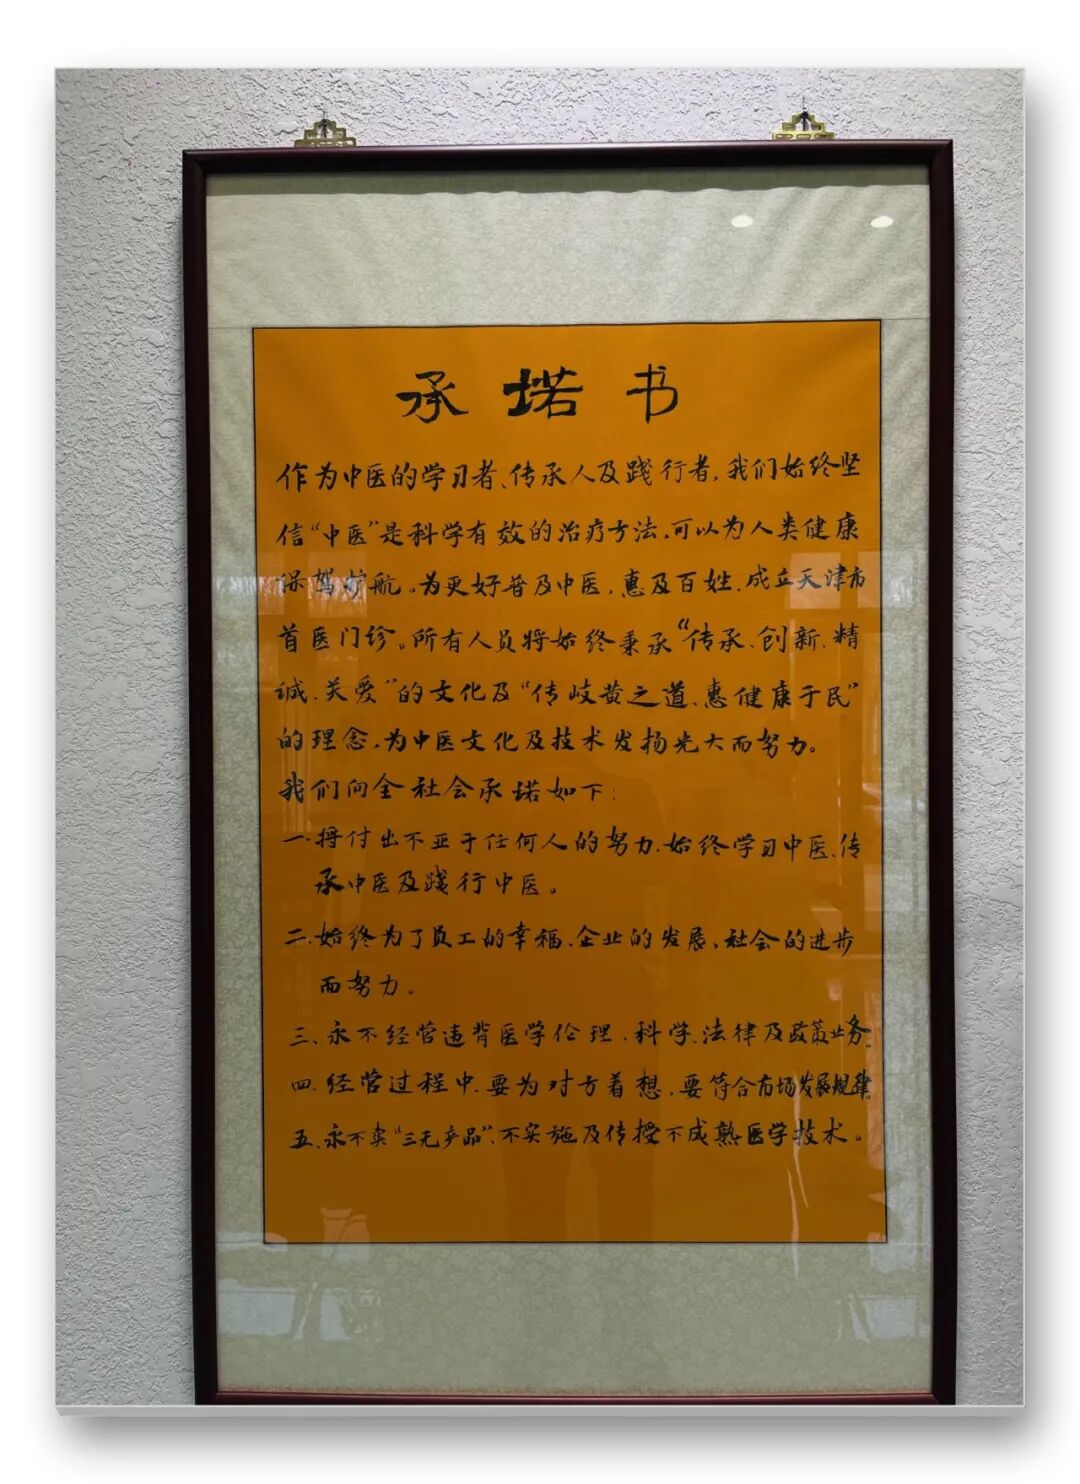 承诺书
作为中医的学习者、传承人及践行者,我们始终坚
信“中医”是科学有效的治疗方法,可以为人类健康
保驾护航。为更好普及中医,惠及百姓,成立天津市
首医门诊。所有人员将始终秉承“传承、创新、精
诚、关爱”的文化及“传岐黄之道、惠健康于民”
的理念,为中医文化及技术发扬光大而努力。
我们向全社会承诺如下:
一、将付出不亚于任何人的努力,始终学习中医、传
承中医及践行中医。
二、始终为了员工的幸福、企业的发展、社会的进步
而努力。
三、永不经营违背医学伦理、科学、法律及政策业务。
四、经营过程中,要为对方着想,要符合市场发展规律
五、永不卖“三无产品”、不实施及传授不成熟医学技术。